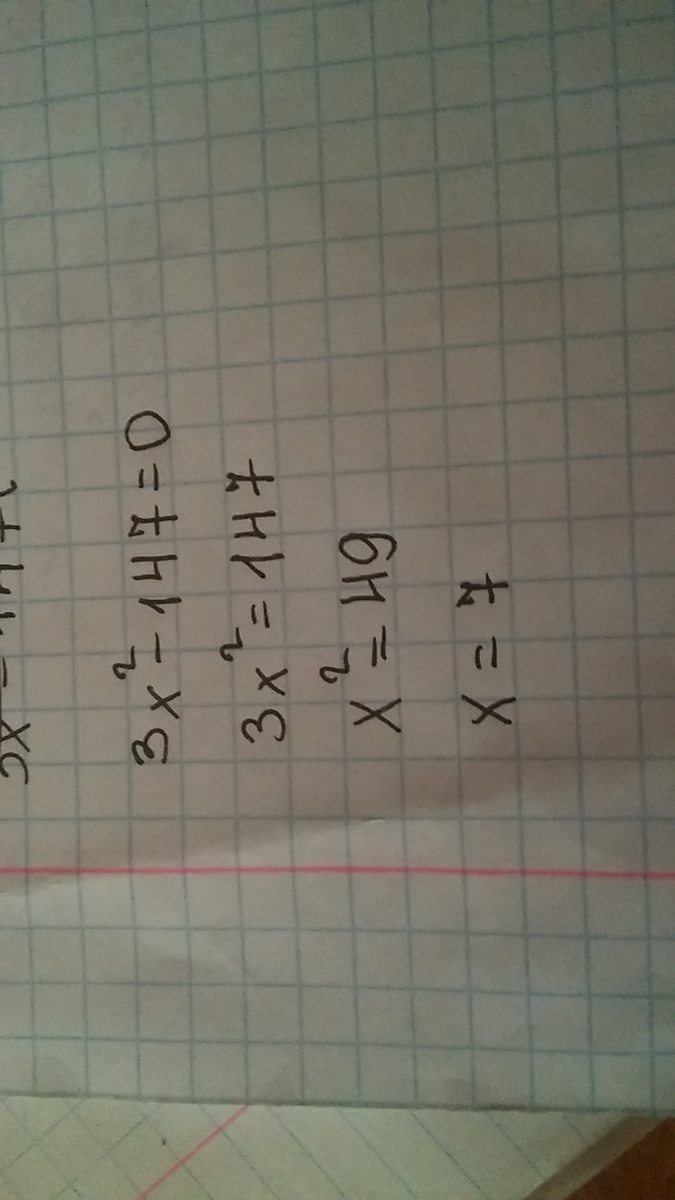 3x² - 147 = 0
3x² = 147
x² = 49
x = 7